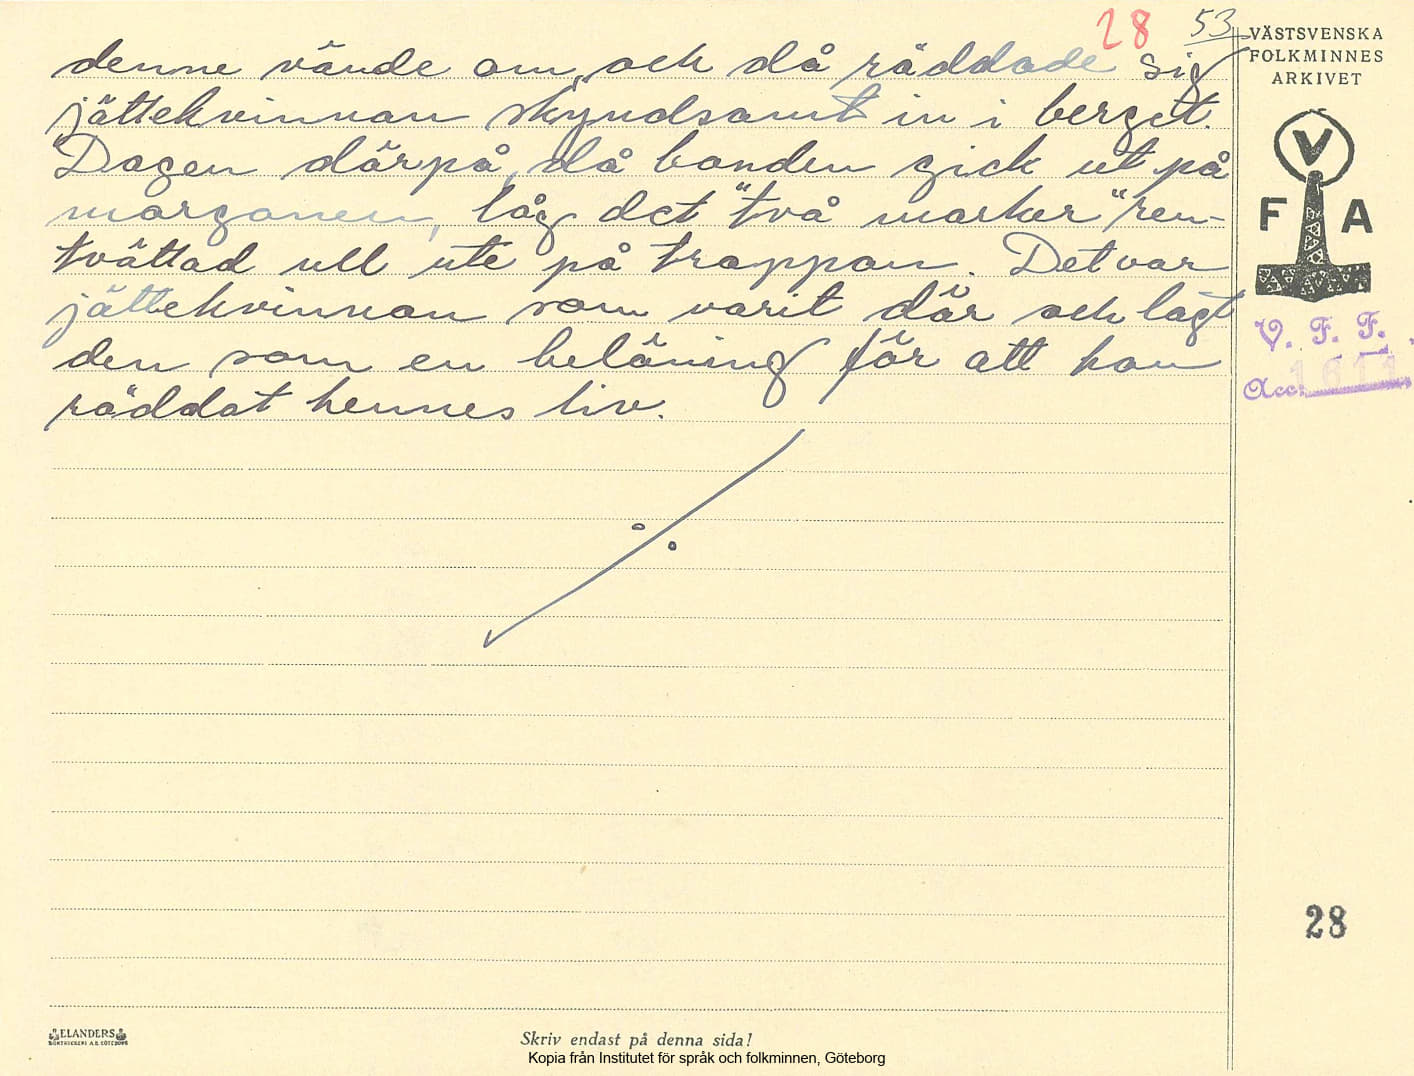 28 53
VÄSTSVENSKA
FOLKMINNES
ARKIVET
denne vände om, och då räddade sig
jättekvinnan skyndsamt in i berget.
Dagen därpå, då bonden gick ut på
morgonen, låg det "två marker" ren-
tvättad ull ute på trappan. Det var
jättekvinnan som varit där och lagt
den som en belåning för att han
räddat hennes liv.
V
F A
V. F. F.
Acc: 1611
28
ELANDERS
BOKTRYCKERI A.B. GÖTEBORG
Skriv endast på denna sida!
Kopia från Institutet för språk och folkminnen, Göteborg